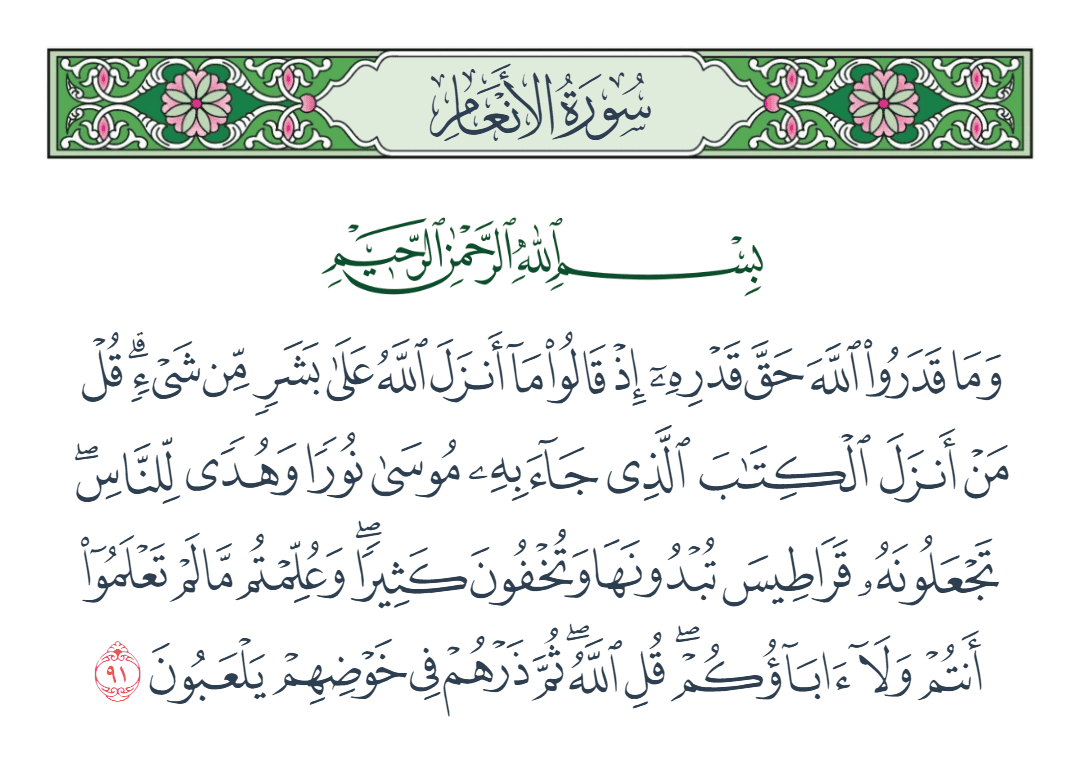 سُورَةُ الأَنْعَامِ
بِسْمِ ٱللَّهِ ٱلرَّحْمَٰنِ ٱلرَّحِيمِ
وَمَا قَدَرُواْ ٱللَّهَ حَقَّ قَدْرِهِۦٓ إِذْ قَالُواْ مَآ أَنزَلَ ٱللَّهُ عَلَىٰ بَشَرٖ مِّن شَىْءٖۗ قُلْ
مَنْ أَنزَلَ ٱلْكِتَٰبَ ٱلَّذِى جَآءَ بِهِۦ مُوسَىٰ نُورٗا وَهُدٗى لِّلنَّاسِۖ
تَجْعَلُونَهُۥ قَرَاطِيسَ تُبْدُونَهَا وَتُخْفُونَ كَثِيرٗاۖ وَعُلِّمْتُم مَّا لَمْ تَعْلَمُوٓاْ
أَنتُمْ وَلَآ ءَابَآؤُكُمْۖ قُلِ ٱللَّهُۖ ثُمَّ ذَرْهُمْ فِى خَوْضِهِمْ يَلْعَبُونَ ٩١